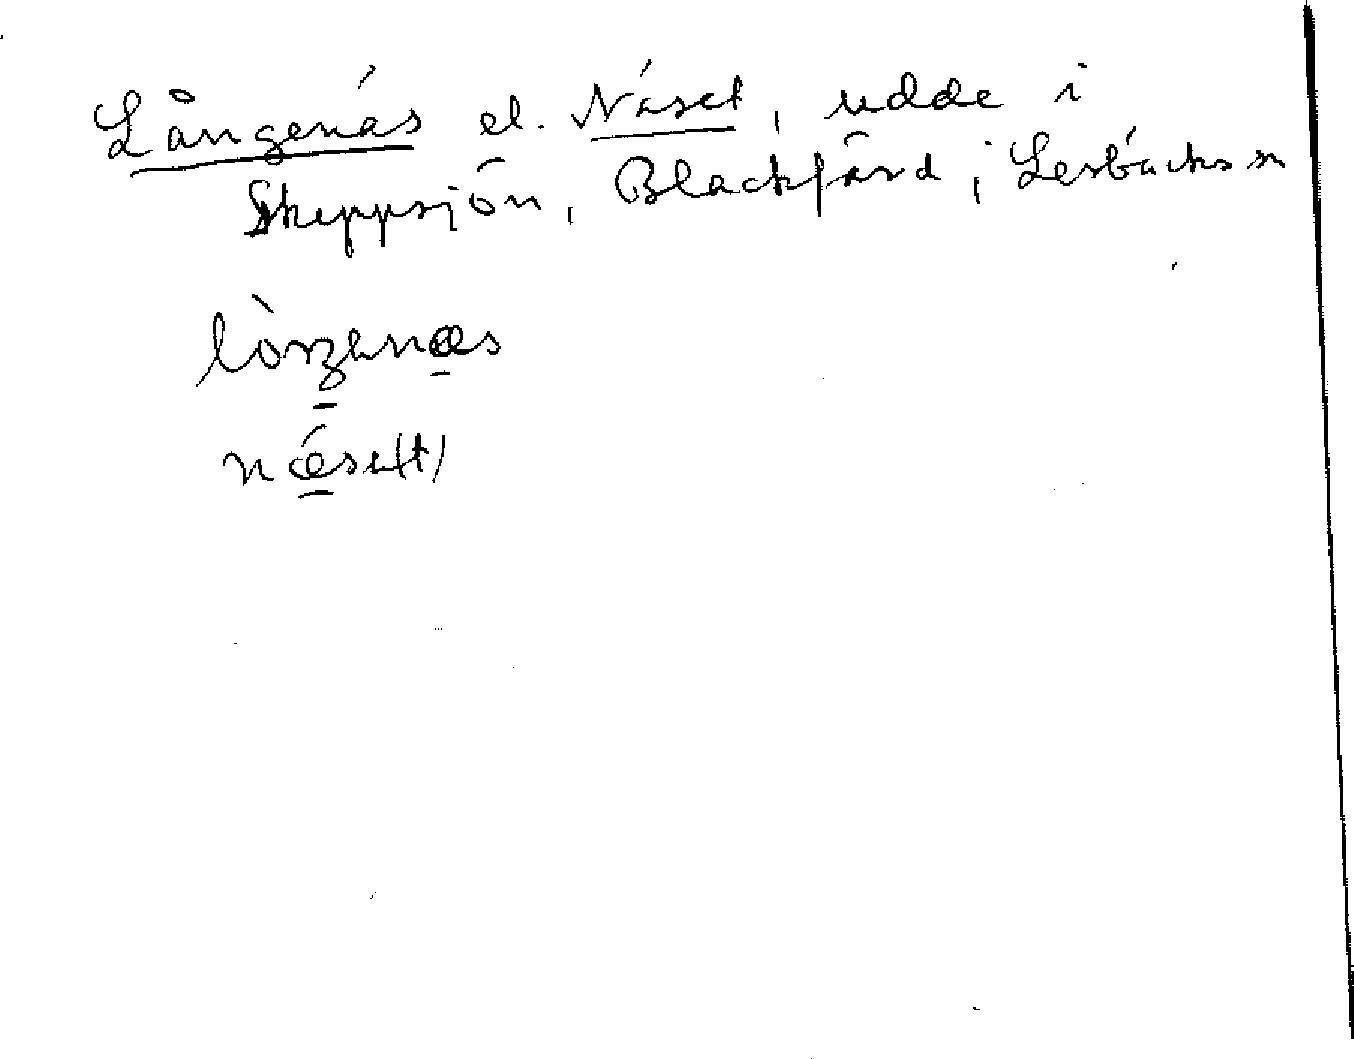 Långenäs el. Näset, udde i
Skeppsjön, Blackfjärd, Lerbäcks sn
lòŋenæs
nǽsɘ(t)